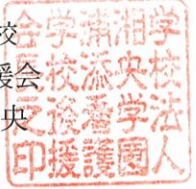 校
援会
央
学校法人
湘央学園
浦添看護
学校後援
会長之印